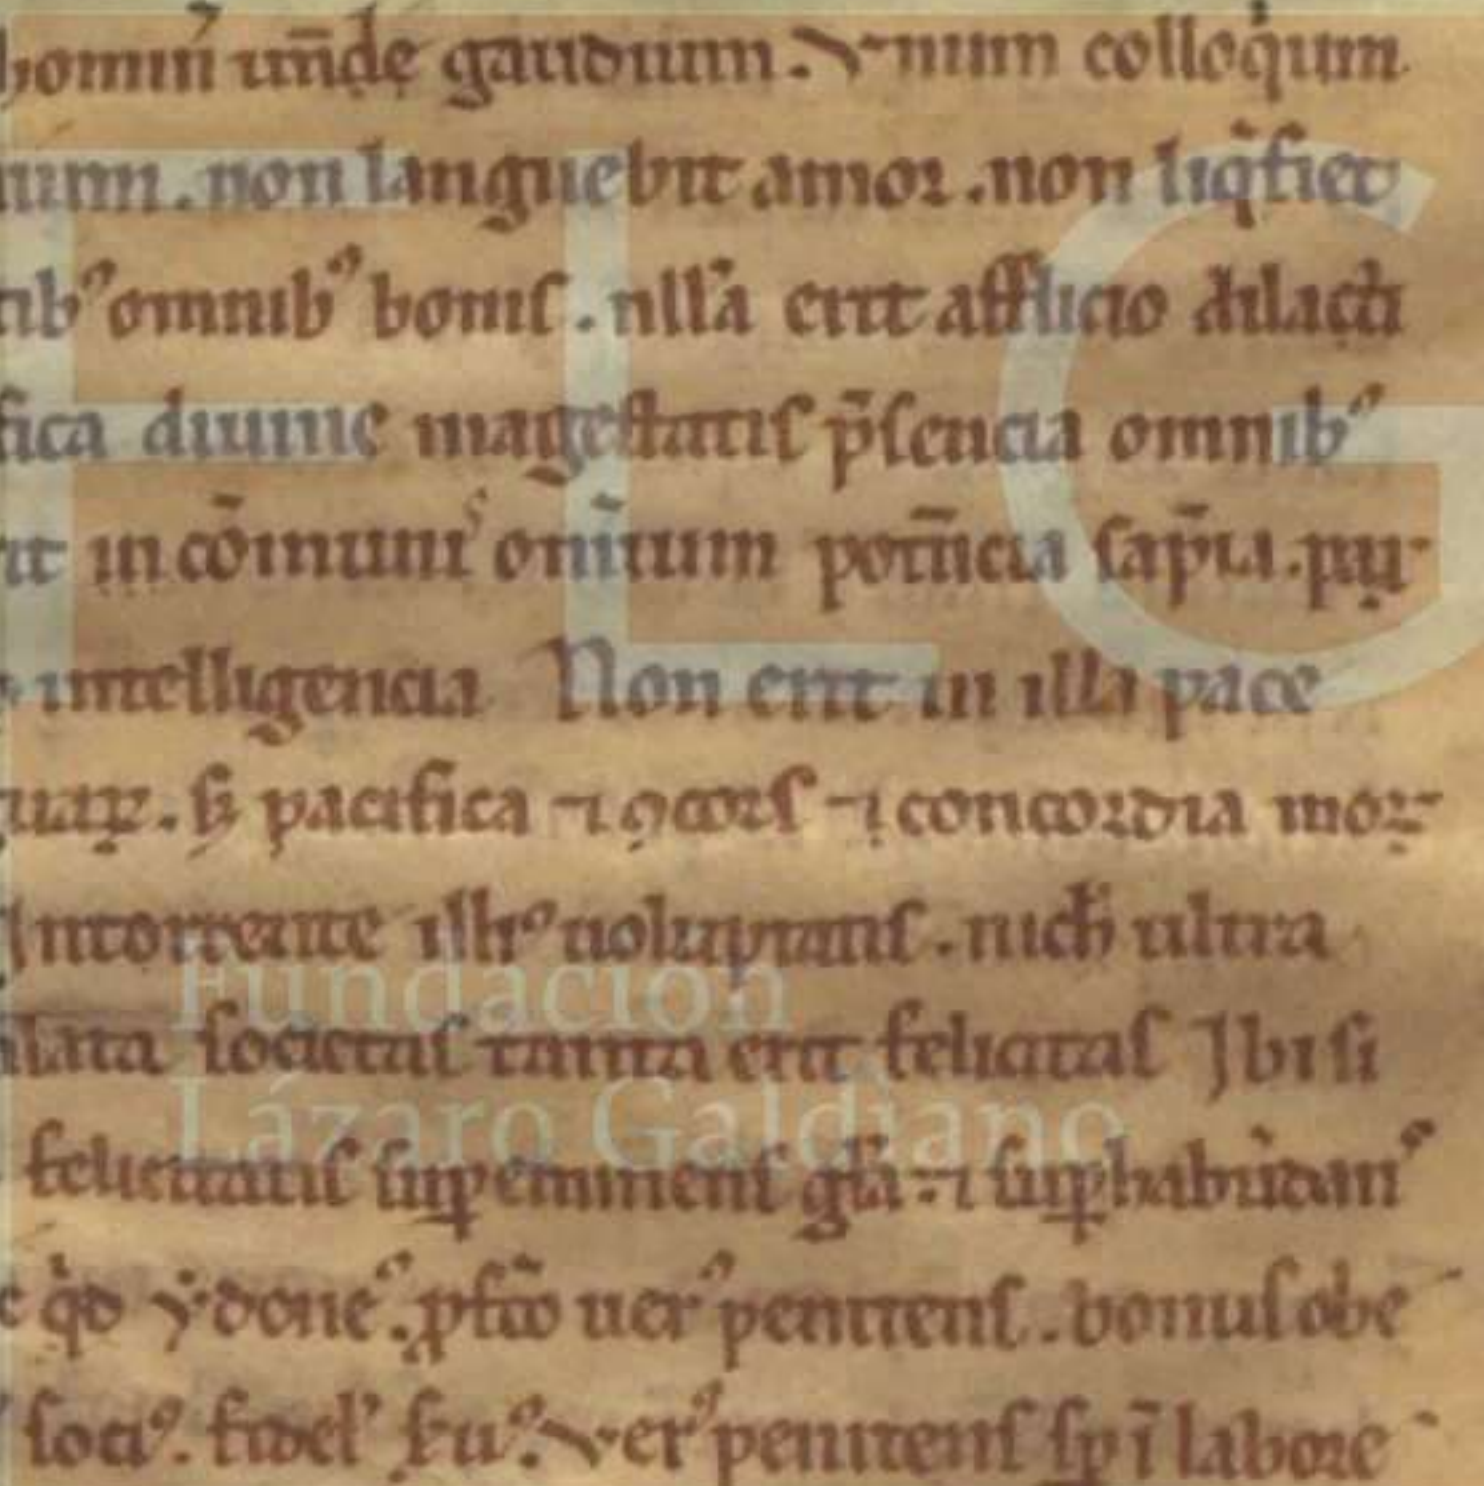 gaudium. Vnum colloqium
non languebit amor. non liqfiet
omnib⁹ boniſ. nll̉a erit afflictio
fica diuine mageſtatiſ p̄ſencia omnib⁹
in cōmuni om̄ium potn̄cia ſap̄ia.
intelligencia Non erit in illa pace
pacifica ⁊ ꝯcorſ ⁊ concordia
Intorrente illi⁹ uoluptatiſ. nich̄ ultra
lata ſocietaſ tanta erit felicitaſ Ibi ſi
felicitatiſ ſuꝑeminenſ gl̉a ⁊ ſuꝑhabūdan
ydone⁹. uer⁹ penitenſ. bonuſ obe
ſoci⁹. fidel' Ver⁹ penitenſ ſp ī labore
Fundación
Lázaro Galdiano
FLG